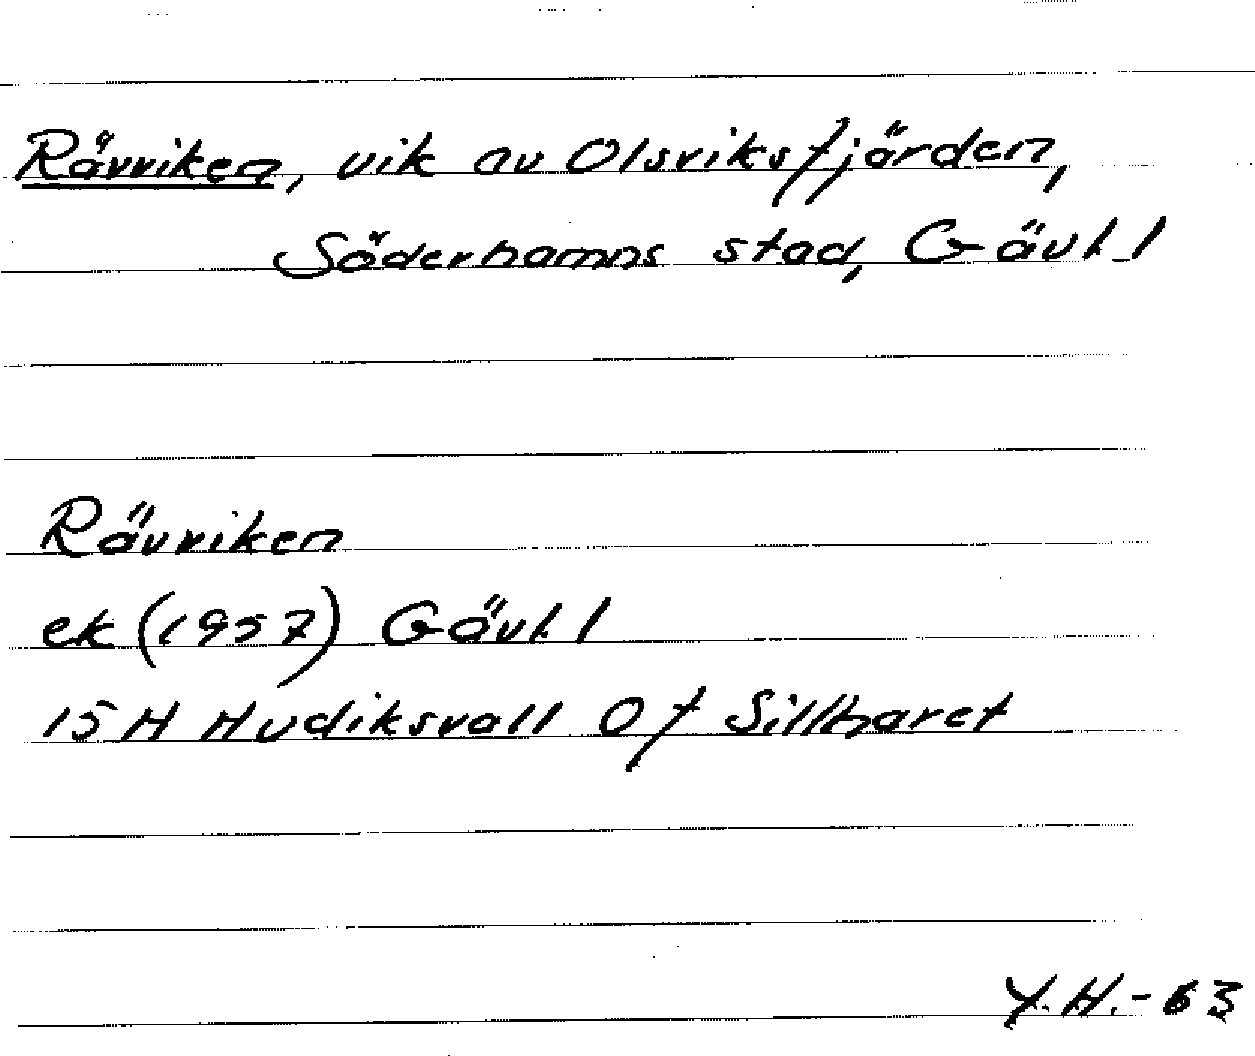 Rävviken, vik av Olsviksfjärden,
Söderhamns stad, Gävl. l
Rävviken
ek (1957) Gävl. l
15 H Hudiksvall 0 f Sillharet
Y.H.-63